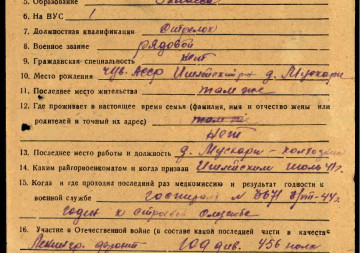 5. Образование
6. На ВУС 1
7. Должностная квалификация Стрелок
8. Военное звание рядовой
9. Гражданская специальность нет
10. Место рождения Чув. АССР Ишлейский р-н д. Мускари
11. Последнее место жительства там же
12. Где проживает в настоящее время семья (фамилия, имя и отчество жены или
родителей и точный их адрес) там же
нет
13. Последнее место работы и должность д. Мускары - колхозник
14. Каким райгорвоенкоматом и когда призван Ишлейским июль 41 г.
15. Когда и где проходил последний раз медкомиссию и результат годности к
военной службе госпиталь N
годен к строевой службе
16. Участие в Отечественной войне (в составе какой последней части в качестве
Ленингр. фронт див. 456 полк